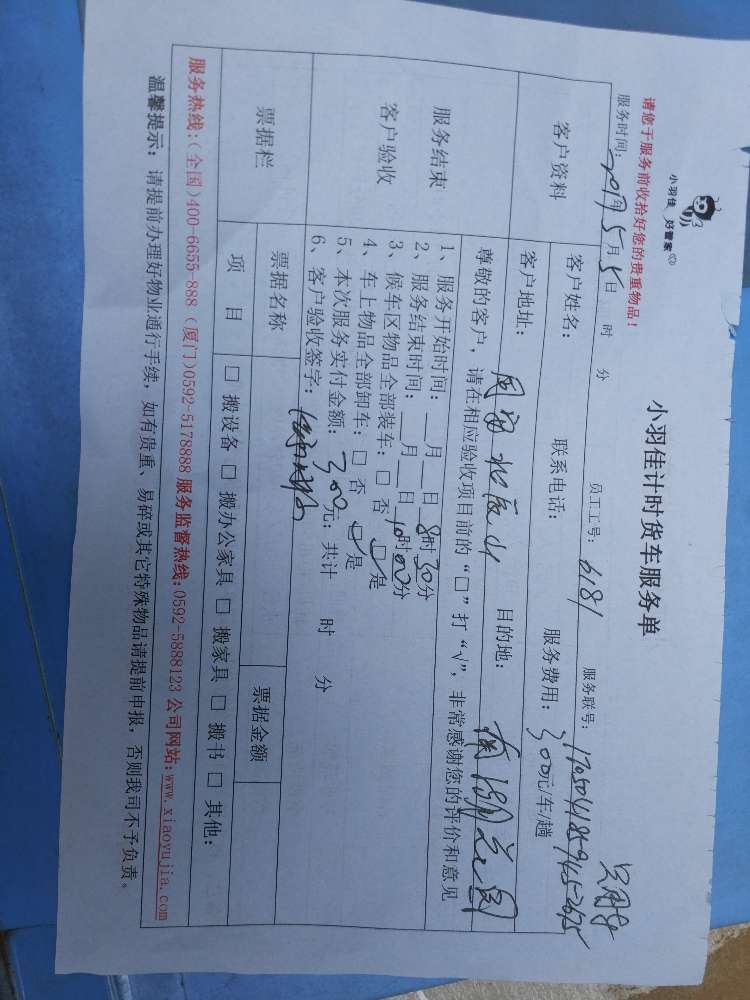 小羽佳 好管家
小羽佳计时货车服务单
请您于服务前收拾好您的贵重物品！
服务时间： 月5日 时 分 员工工号：6181 服务联号：
客户资料
客户姓名： 联系电话： 服务费用：300元/车/趟
客户地址： 目的地：
服务结束
客户验收
尊敬的客户，请在相应验收项目前的“□”打“√”，非常感谢您的评价和意见
1、服务开始时间：__月__日8时30分
2、服务结束时间：__月__日10时00分
3、候车区物品全部装车：□ 否 ☑ 是
4、车上物品全部卸车：□ 否 ☑ 是
5、本次服务实付金额：300元；共计 时 分
6、客户验收签字：
票据栏
票据名称 票据金额
项 目 □ 搬设备 □ 搬办公家具 □ 搬家具 □ 搬书 □ 其他：
服务热线：（全国）400-6655-888（厦门）0592-5178888 服务监督热线：0592-5888123 公司网站：www.xiaoyujia.com
温馨提示：请提前办理好物业通行手续，如有贵重、易碎或其它特殊物品请提前申报，否则我司不予负责。